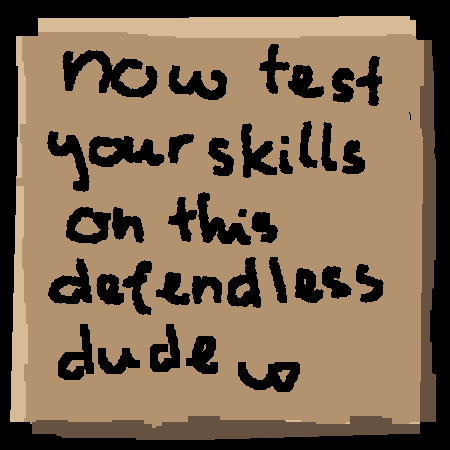 now test
your skills
on this
defendless
dude